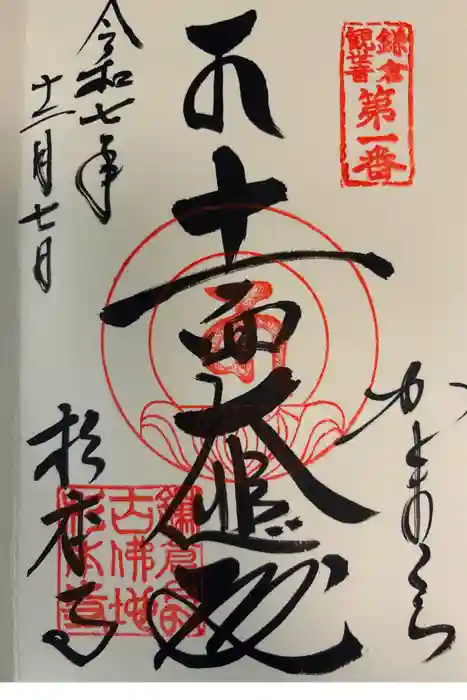 鎌倉
観世音
第一番
かまくら
十一面大悲殿
令和七年
十二月七日
杉本寺
鎌倉最
古佛地
杉本寺